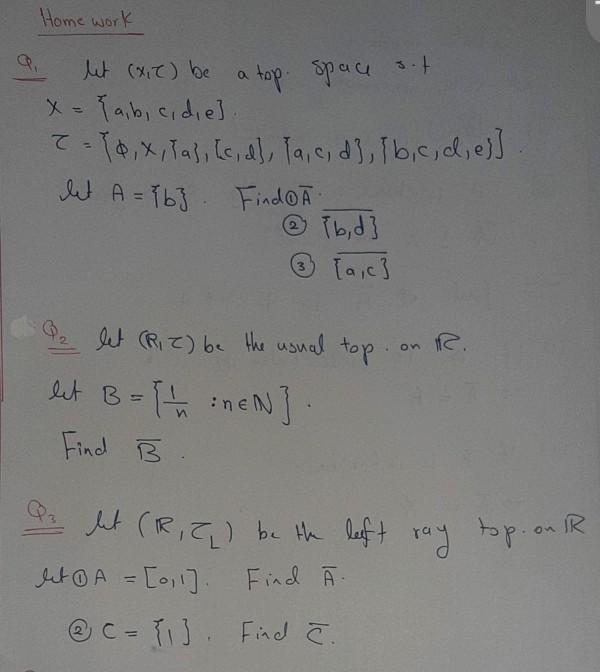 Home work
Q1 let (X,τ) be a top. space s.t
X = {a,b,c,d,e}.
τ = {Φ,X,{a},{c,d},{a,c,d},{b,c,d,e}}.
let A = {b}. Find ① A̅.
② \overline{{b,d}}
③ \overline{{a,c}}
Q2 let (R,τ) be the usual top. on R.
let B = {1/n : n∈N}.
Find B̅.
Q3 let (R,τ_L) be the left ray top. on R
let ① A = [0,1]. Find A̅.
② C = {1}. Find C̅.